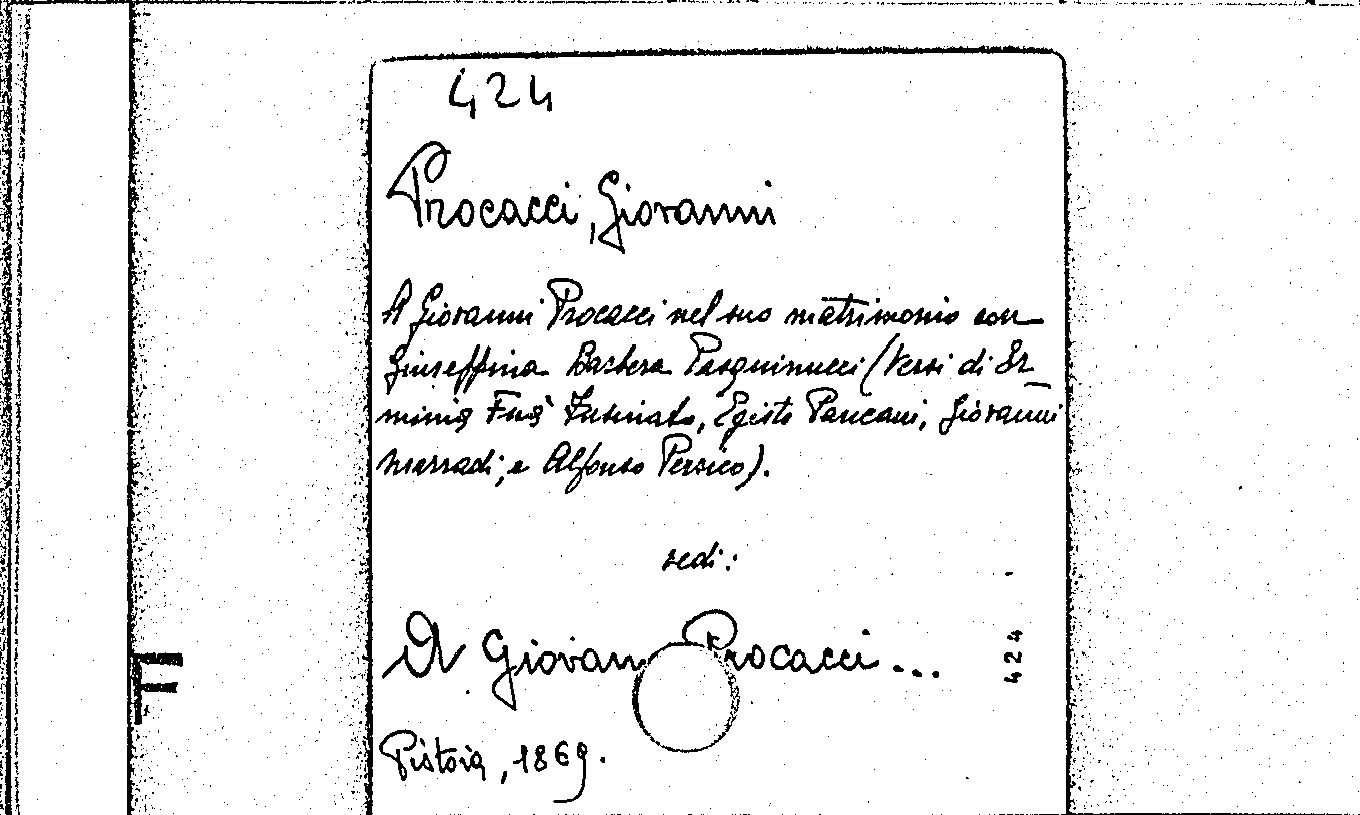 424
Procacci, Giovanni
A Giovanni Procacci nel suo matrimonio con
Giuseffina Barbera Pasquinucci (Versi di Er_
minia Fuà Fusinato, Egisto Pancani, Giovanni
Marradi, e Alfonso Persico).
vedi:
A Giovan Procacci...
424
Pistoia, 1869.